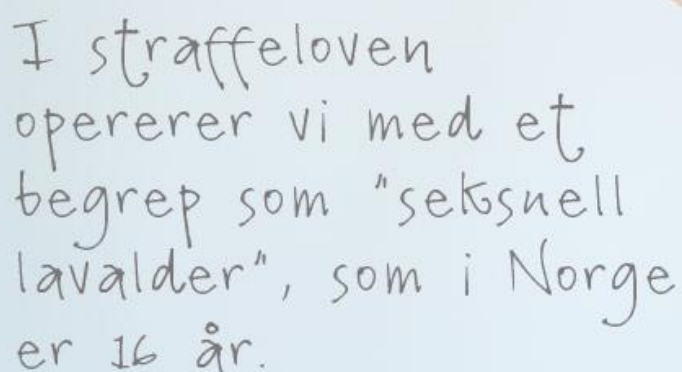 I straffeloven
opererer vi med et
begrep som "seksuell
lavalder", som i Norge
er 16 år.